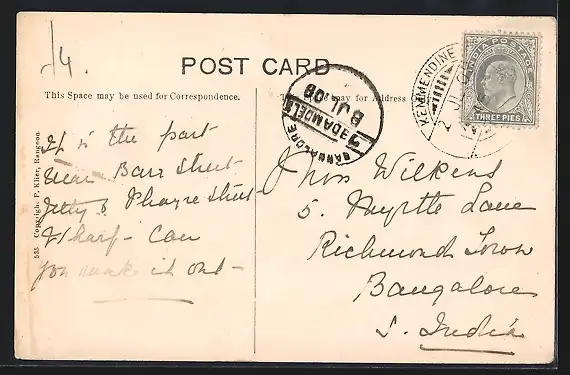 /4.
POST CARD
This Space may be used for Correspondence.
may for Address
INDIA POSTAGE
THREE PIES
KEMMENDINE
BANGALORE
8 JL 09
535 Copyright. P. Klier, Rangoon.
It is the part
near Barr Street
Jetty & Phayre Street
Wharf - Can
you make it out -
Wilkens
5. Myrtle Lane
Richmond Town
Bangalore
S. India